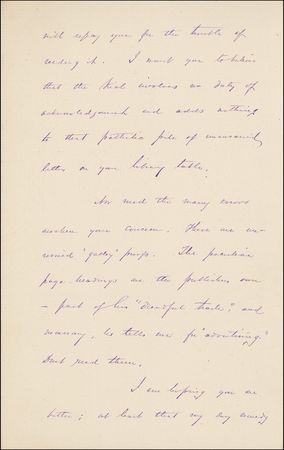 will repay you for the trouble of
reading it. I want you to believe
that the deed involves no duty of
acknowledgment and adds nothing
to that pathetic pile of unanswered
letters on your library table.
Nor need the many errors
awaken your concern. These are un-
revised "galley" proofs. The peculiar
page-headings are the publishers own
- part of his "dreadful trade," and
necessary, he tells me for "advertising."
Dont read them.
I am hoping you are
better; at least that my day